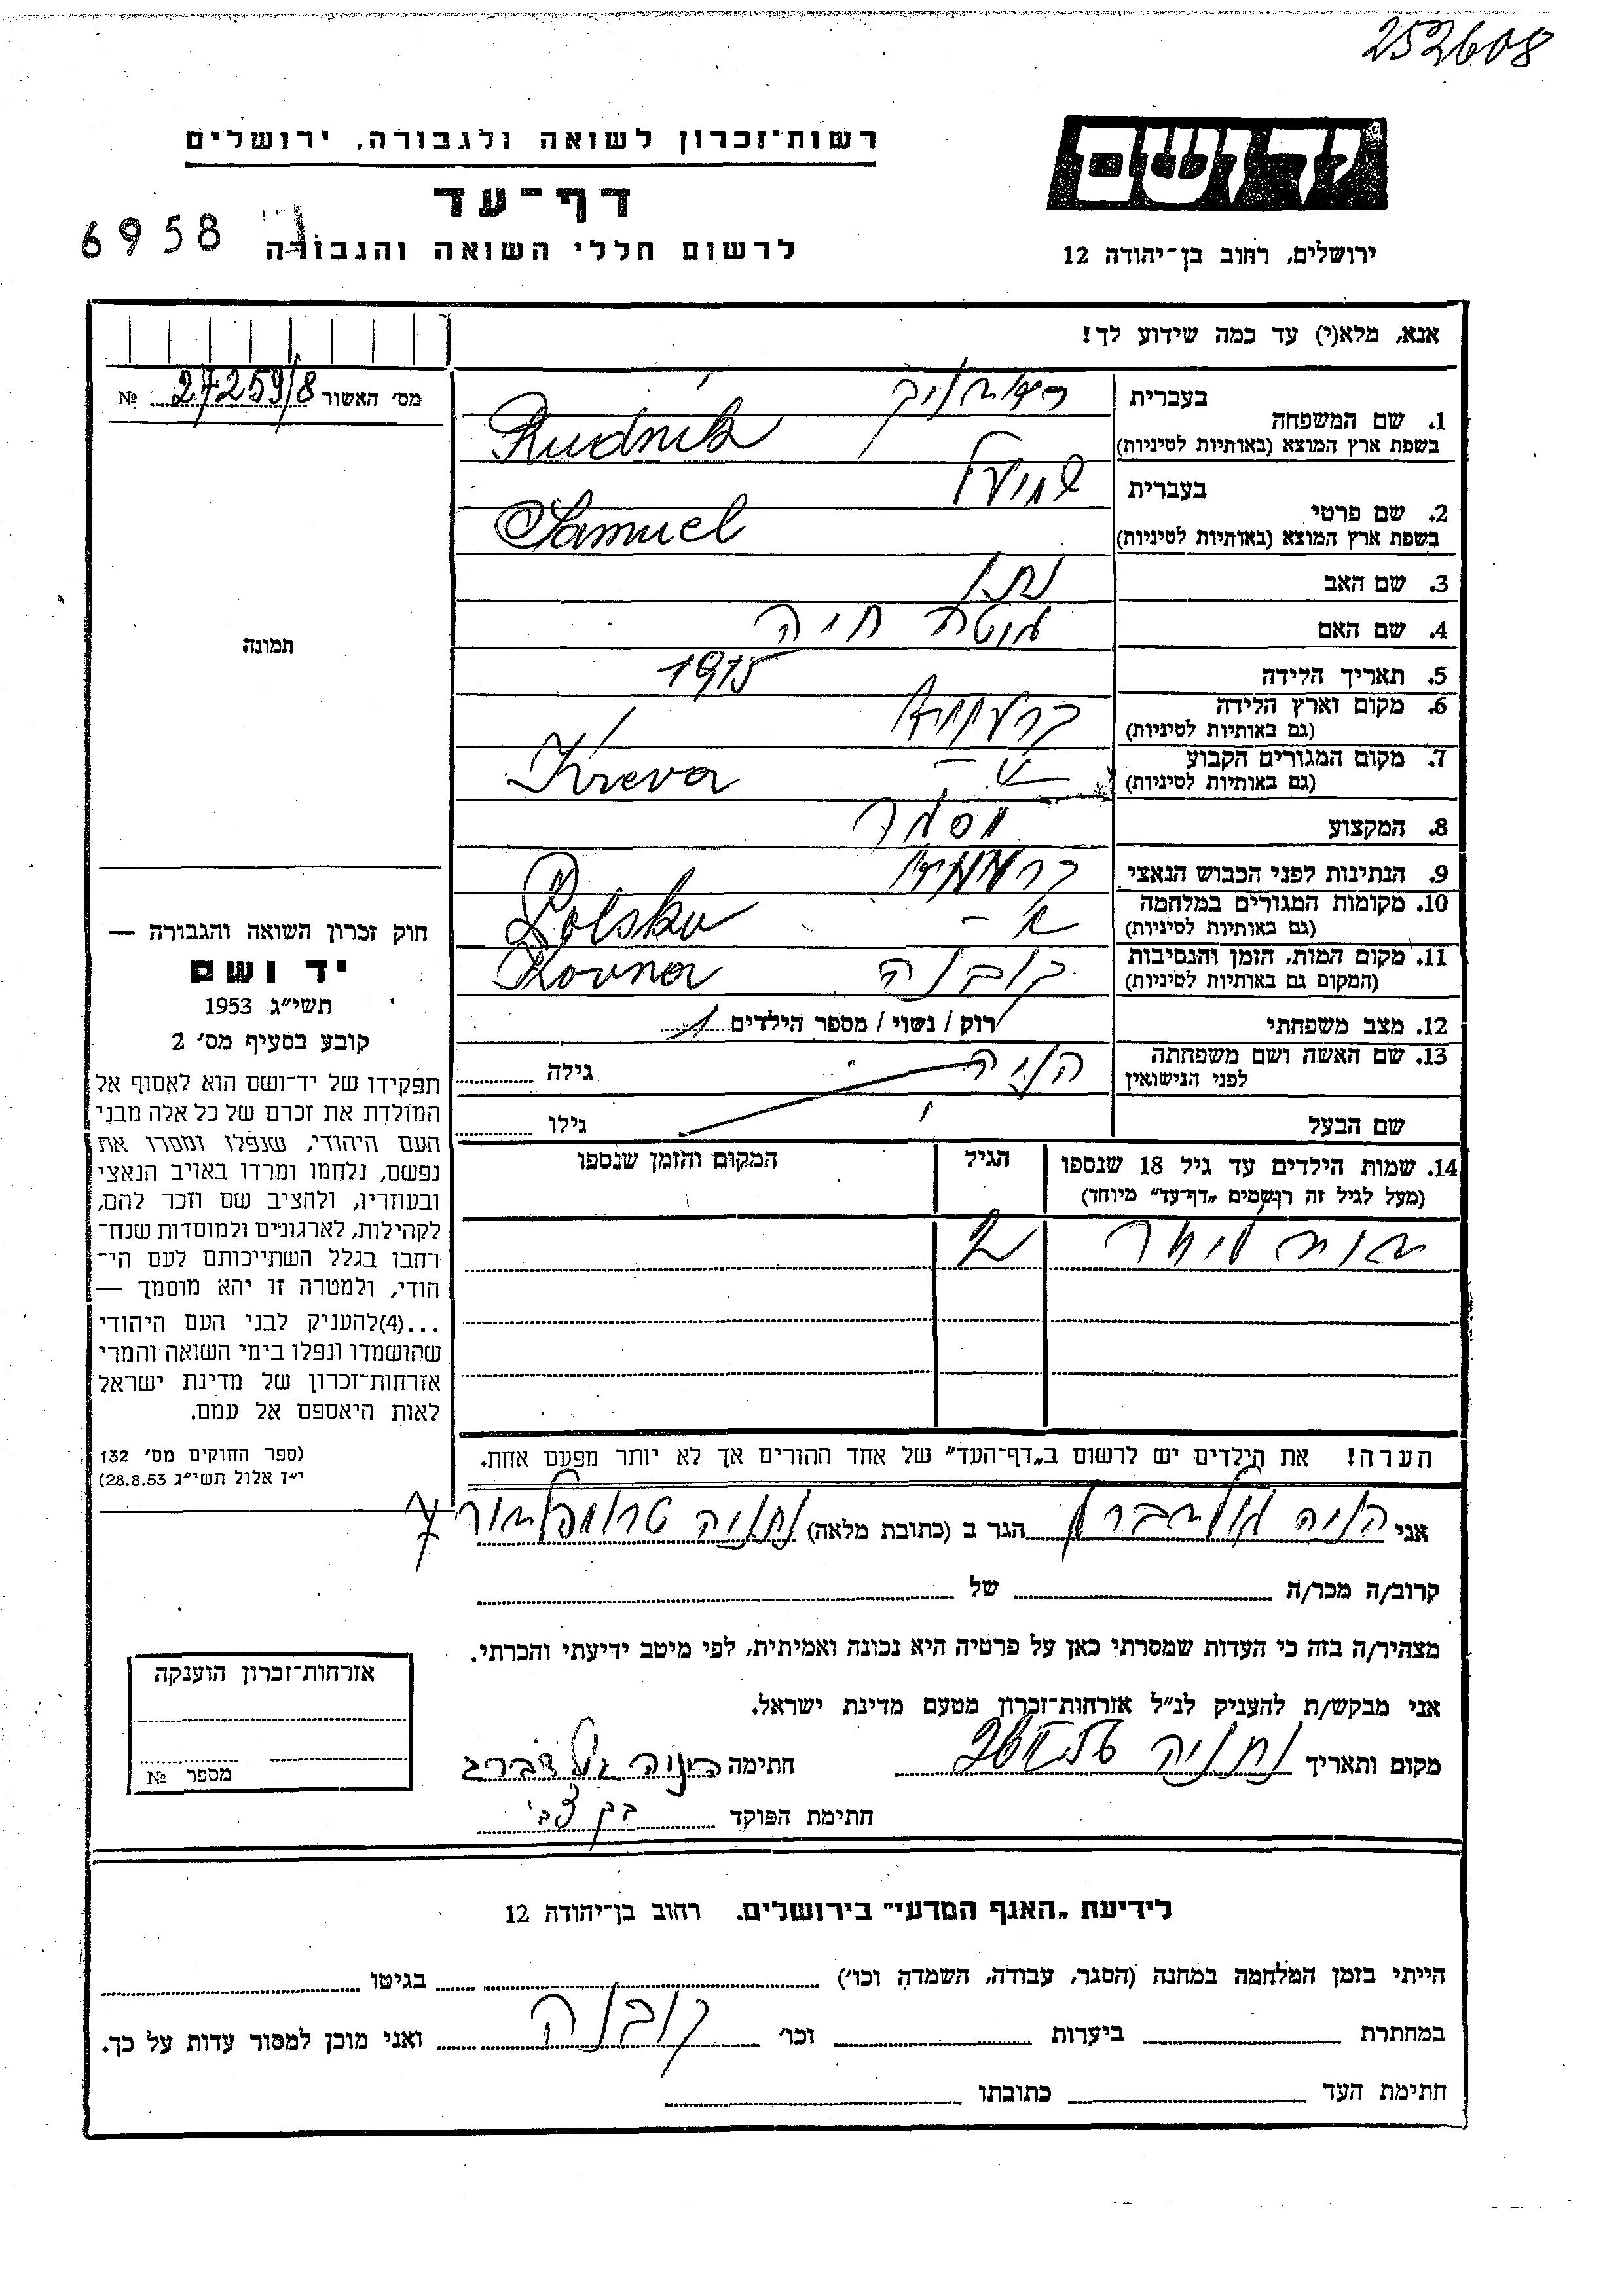 252608
יד ושם
רשות־זכרון לשואה ולגבורה, ירושלים
דף־עד
לרשום חללי השואה והגבורה
6958
ירושלים, רחוב בן־יהודה 12
אנא, מלא(י) עד כמה שידוע לך!
מס׳ האשור 27259/8 №
1. שם המשפחה
בעברית
בשפת ארץ המוצא (באותיות לטיניות)
Rudnik
2. שם פרטי
בעברית שמועל
בשפת ארץ המוצא (באותיות לטיניות)
Samuel
3. שם האב נתן
4. שם האם חיה
5. תאריך הלידה 1915
6. מקום וארץ הלידה
(גם באותיות לטיניות)
7. מקום המגורים הקבוע
(גם באותיות לטיניות)
Kreva
8. המקצוע מסגר
9. הנתינות לפני הכבוש הנאצי
10. מקומות המגורים במלחמה
(גם באותיות לטיניות)
Polska
11. מקום המות, הזמן והנסיבות
(המקום גם באותיות לטיניות)
קובנה Kovna
12. מצב משפחתי רוק / נשוי / מספר הילדים 1
13. שם האשה ושם משפחתה
לפני הנישואין
הניה
גילה
שם הבעל
גילו
14. שמות הילדים עד גיל 18 שנספו
(מעל לגיל זה רושמים „דף־עד״ מיוחד)
הגיל
המקום והזמן שנספו
הערה! את הילדים יש לרשום ב„דף־העד״ של אחד ההורים אך לא יותר מפעם אחת.
תמונה
חוק זכרון השואה והגבורה —
יד ושם
תשי״ג 1953
קובע בסעיף מס׳ 2
תפקידו של יד־ושם הוא לאסוף אל
המולדת את זכרם של כל אלה מבני
העם היהודי, שנפלו ומסרו את
נפשם, נלחמו ומרדו באויב הנאצי
ובעוזריו, ולהציב שם וזכר להם,
לקהילות, לארגונים ולמוסדות שנח־
רבו בגלל השתייכותם לעם הי־
הודי, ולמטרה זו יהא מוסמך —
...(4)להעניק לבני העם היהודי
שהושמדו ונפלו בימי השואה והמרי
אזרחות־זכרון של מדינת ישראל
לאות היאספם אל עמם.
(ספר החוקים מס׳ 132
י״ז אלול תשי״ג 28.8.53)
אני הניה גולדברג הגר ב (כתובת מלאה) נתניה טרומפלדור 7
קרוב/ה מכר/ה של
מצהיר/ה בזה כי העדות שמסרתי כאן על פרטיה היא נכונה ואמיתית, לפי מיטב ידיעתי והכרתי.
אני מבקש/ת להעניק לנ״ל אזרחות־זכרון מטעם מדינת ישראל.
מקום ותאריך נתניה חתימה הניה גולדברג
חתימת הפוקד בן צבי
אזרחות־זכרון הוענקה
מספר №
לידיעת „האגף המדעי״ בירושלים. רחוב בן־יהודה 12
הייתי בזמן המלחמה במחנה (הסגר, עבודה, השמדה וכו׳) בגיטו
במחתרת ביערות וכו׳ קובנה ואני מוכן למסור עדות על כך.
חתימת העד כתובתו